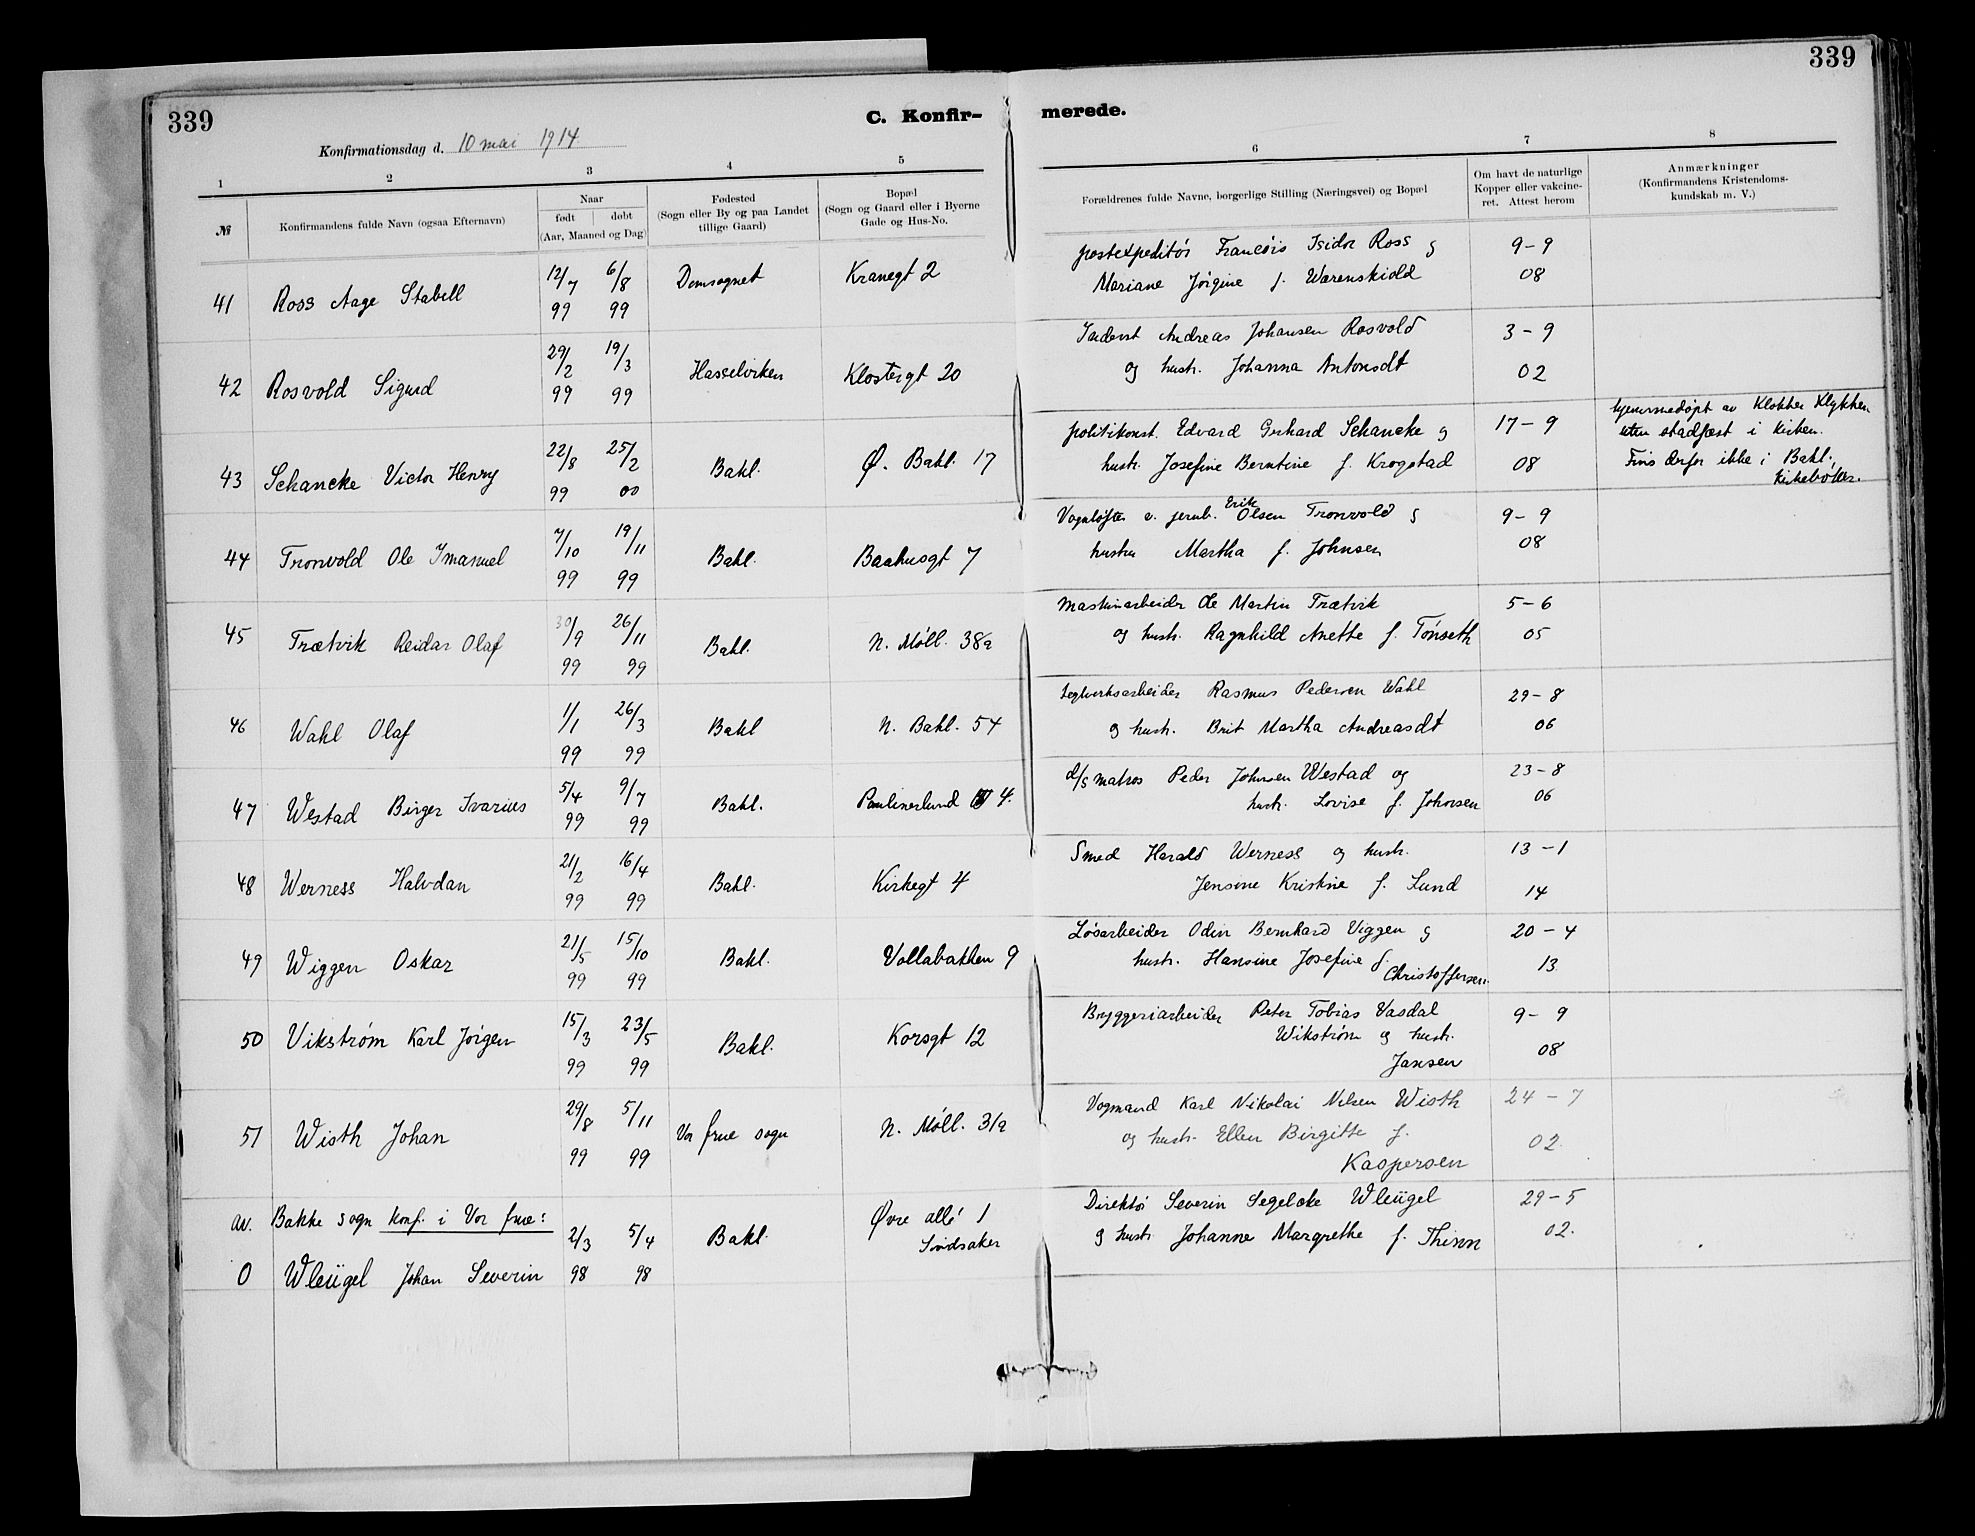 339
339
C. Konfir-
merede.
Konfirmationsdag d. 10 mai 1914.
1
2
3
4
5
6
7
8
№
Konfirmandens fulde Navn (ogsaa Efternavn)
Naar
født
døbt
(Aar, Maaned og Dag)
Fødested
(Sogn eller By og paa Landet
tillige Gaard)
Bopæl
(Sogn og Gaard eller i Byerne
Gade og Hus-No.
Forældrenes fulde Navne, borgerlige Stilling (Næringsvei) og Bopæl
Om havt de naturlige
Kopper eller vakcine-
ret. Attest herom
Anmærkninger
(Konfirmandens Kristendoms-
kundskab m. V.)
41 Ross Aage Stabell 12/7 99 6/8 99 Domsognet Kranegt 2
postexpeditør Francois Isidor Ross g
Mariane Jørgine f. Warenskiold
9-9
08
42 Rosvold Sigurd 29/2 99 19/3 99 Hasselviken Klostergt 20
Inderst Andreas Johansen Rosvold
og hustr. Johanna Antonsdt
3-9
02
43 Schancke Victor Henry 22/8 99 25/2 00 Bakl. Ø. Bakl. 17
politikonst. Edvard Gerhard Schancke g
hustr. Josefine Berntine f. Krogstad
17-9
08
hjemmedøpt av Klokker Klykken
uten stadfæst i kirken.
Fins derfor ikke i Bakl.
kirkebøker.
44 Tronvold Ole Imanuel 7/10 99 19/11 99 Bakl. Baahusgt 7
Vognløfter v. jernb. Erik Olsen Tronvold g
hustru Martha f. Johnsen
9-9
08
45 Trætvik Reidar Olaf 30/9 99 26/11 99 Bakl. N. Møll. 38a
Maskinarbeider Ole Martin Trætvik
og hustr. Ragnhild Anette f. Tønseth
5-6
05
46 Wahl Olaf 1/1 99 26/3 99 Bakl N. Bakl. 54
Teglverksarbeider Rasmus Pedersen Wahl
g hustr. Brit Martha Andreasdt
29-8
06
47 Westad Birger Ivarius 5/4 99 9/7 99 Bakl. Paulinerlund 4.
d/s matros Peder Johnsen Westad og
hustr. Lovise f. Johnsen
23-8
06
48 Werness Halvdan 21/2 99 16/4 99 Bakl. Kirkegt 4
Smed Harald Werness og hustr.
Jensine Kristine f. Lund
13-1
14
49 Wiggen Oskar 21/5 99 15/10 99 Bakl. Vollabakken 9
Løsarbeider Odin Bernhard Viggen g
hustr. Hansine Josefine f.
Christoffersen.
20-4
13
50 Vikstrøm Karl Jørgen 15/3 99 23/5 99 Bakl. Korsgt 12
Bryggeriarbeider Peter Tobias Vasdal
Wikstrøm g hustr.
Jansen
9-9
08
51 Wisth Johan 29/8 99 5/11 99 Vor frue sogn N. Møll. 31a
Vognmand Karl Nikolai Nilsen Wisth
og hustr. Ellen Birgitte f.
Kaspersen
24-7
02.
av. Bakke sogn konf. i Vor frue:
0 Wleügel Johan Severin 2/3 98 5/4 98 Bakl. Øvre allé 1
Direktør Severin Segelcke Wleügel
g hustr. Johanne Margrethe f. Thinn
29-5
02.